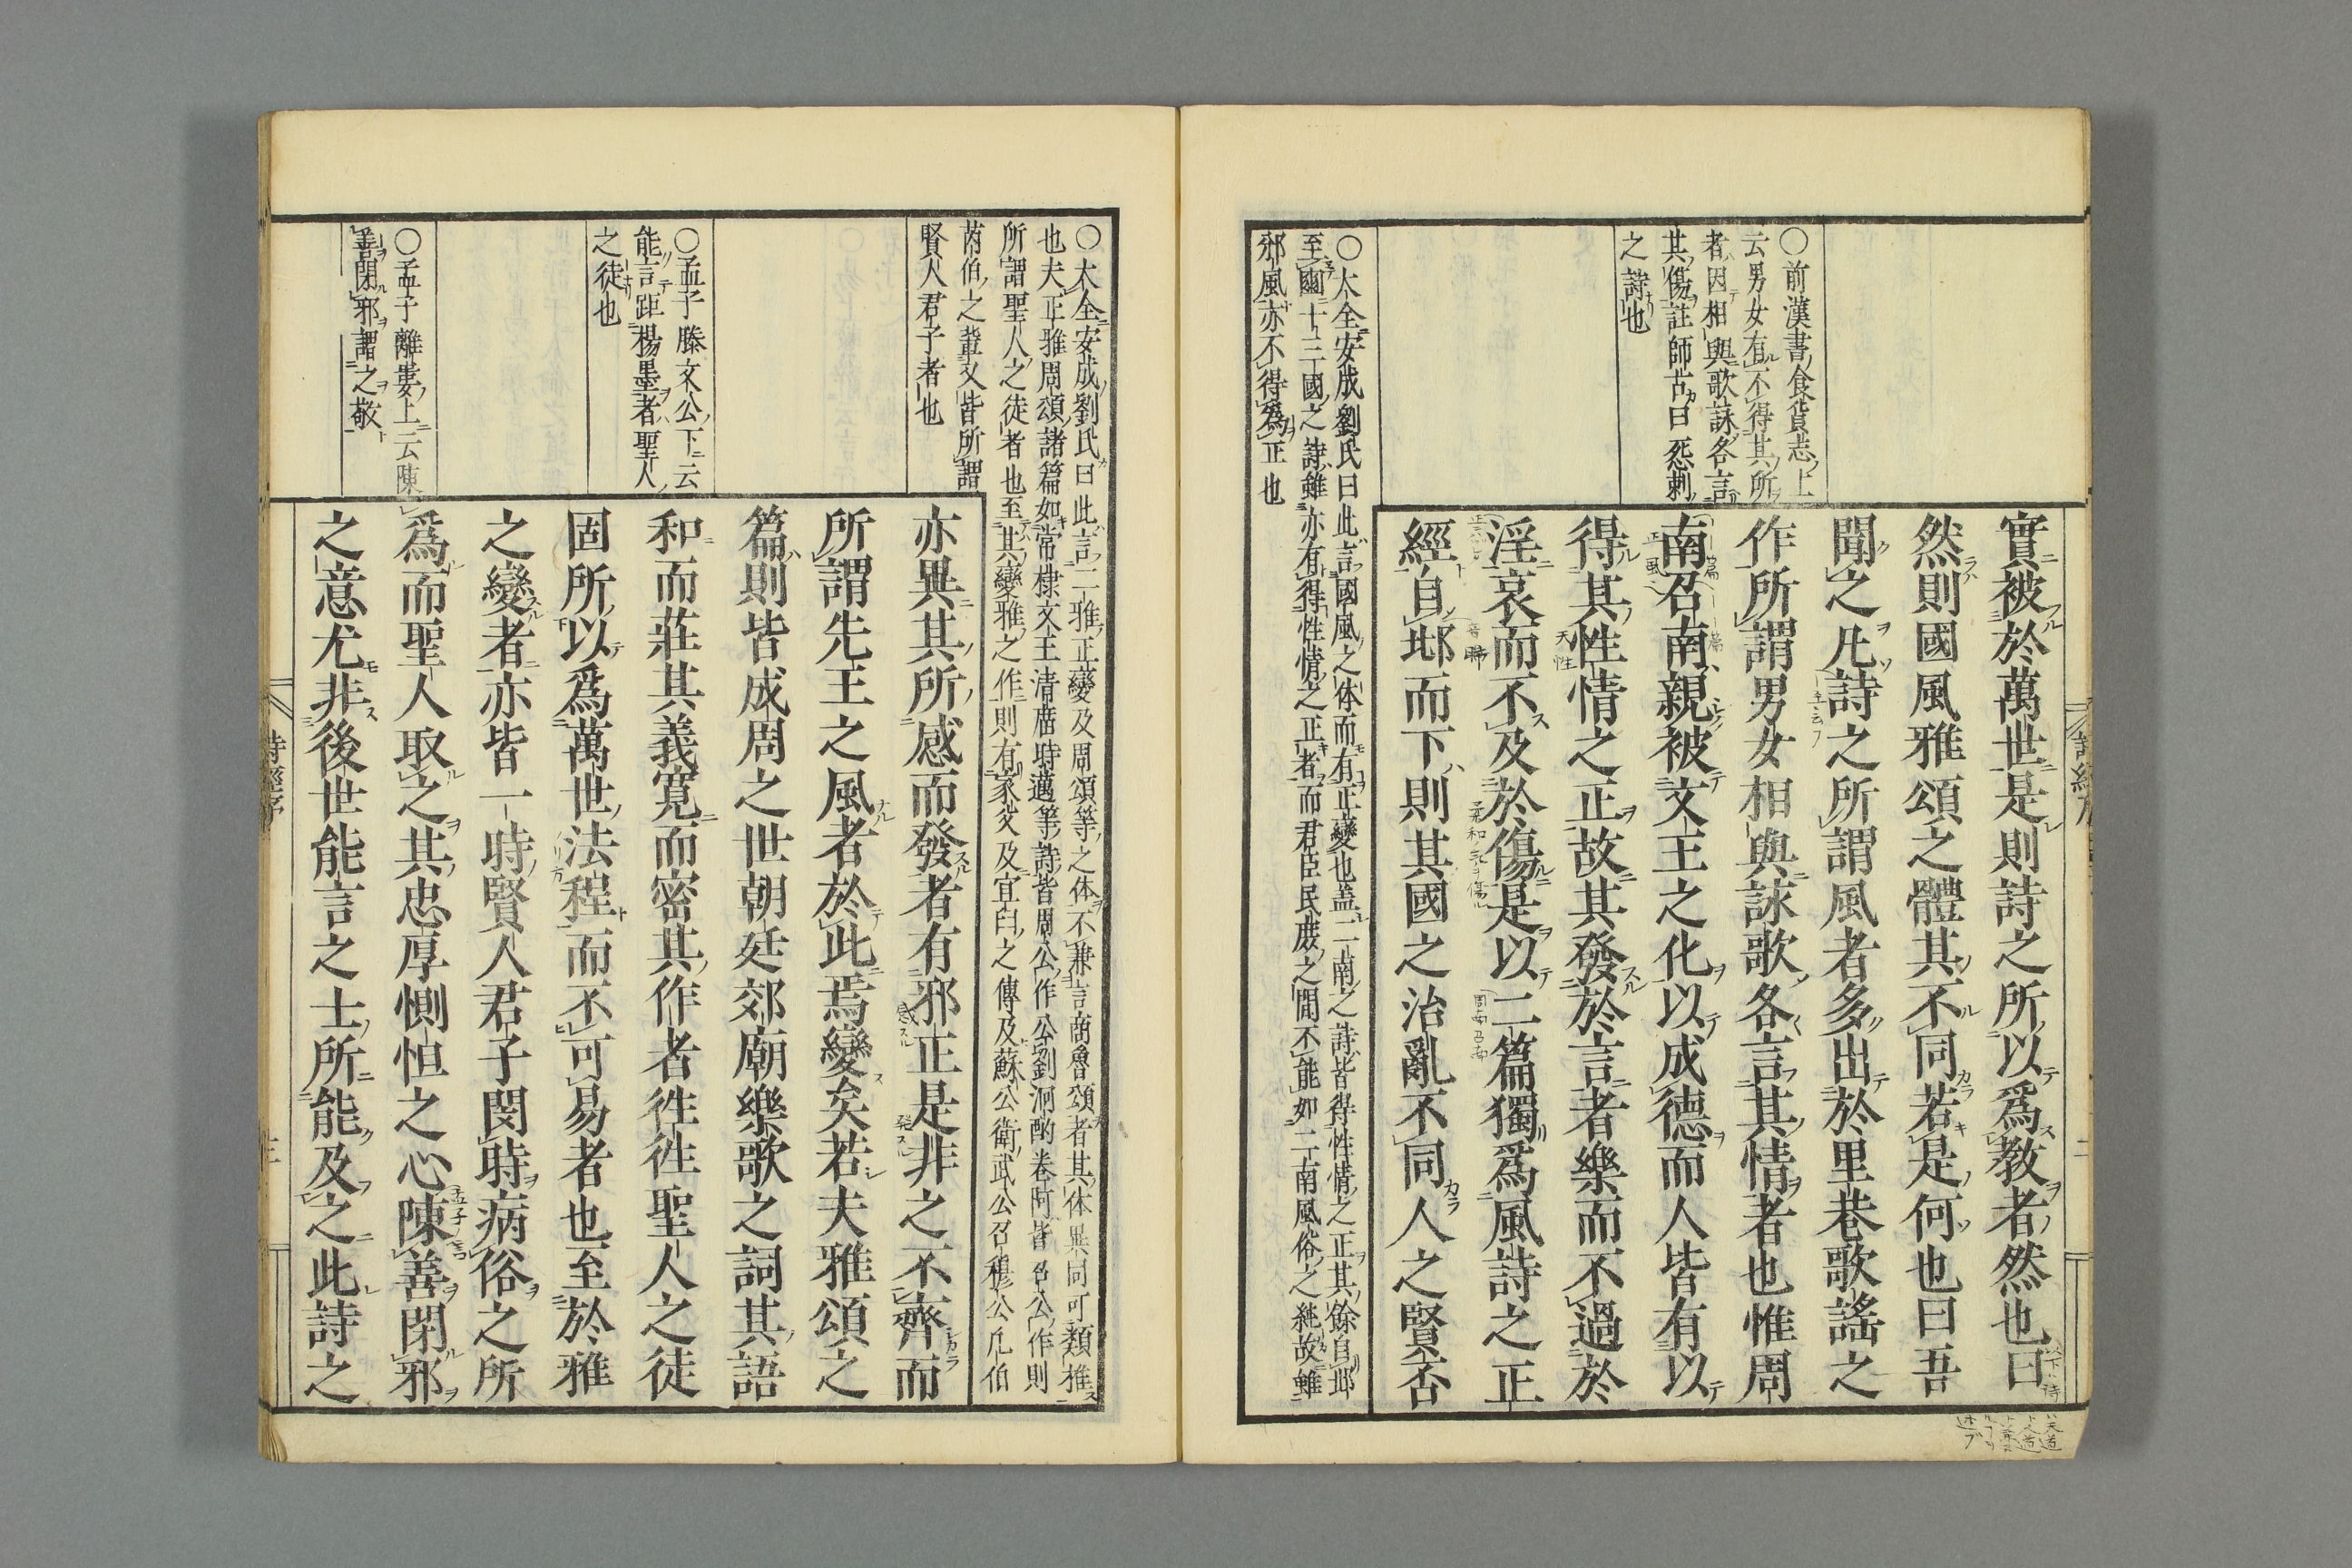 詩經序
二
○前漢書食貨志上
云男女有不得其所
者因相與歌詠各言
其傷註師古曰怨刺
之詩也
實被於萬世是則詩之所以爲教者然也曰
然則國風雅頌之體其不同若是何也曰吾
聞之凡詩之所謂風者多出於里巷歌謠之
作所謂男女相與詠歌各言其情者也惟周
南召南親被文王之化以成德而人皆有以
得其性情之正故其發於言者樂而不過於
淫哀而不及於傷是以二篇獨爲風詩之正
經自邶而下則其國之治亂不同人之賢否
○大全安成劉氏曰此言國風之体而有正變也盖二南之詩皆得性情之正其餘自邶
至豳十三國之詩雖亦有得性情之正者而君臣民庶之間不能如二南風俗之純故雖
邠風亦不得爲正也
○大全安成劉氏曰此言二雅正變及周頌等之体不兼言商魯頌者其体異同可類推
也夫正雅周頌諸篇如常棣文王清廟時邁等詩皆周公作公劉泂酌卷阿皆召公作則
所謂聖人之徒者也至其變雅之作則有家父及宜臼之傳及蘇公衛武公召穆公凡伯
芮伯之輩又皆所謂
賢人君子者也
○孟子滕文公下云
能言距楊墨者聖人
之徒也
○孟子離婁上云陳
善閉邪謂之敬
亦異其所感而發者有邪正是非之不齊而
所謂先王之風者於此焉變矣若夫雅頌之
篇則皆成周之世朝廷郊廟樂歌之詞其語
和而莊其義寬而密其作者徃徃聖人之徒
固所以爲萬世法程而不可易者也至於雅
之變者亦皆一時賢人君子閔時病俗之所
爲而聖人取之其忠厚惻怛之心陳善閉邪
之意尤非後世能言之士所能及之此詩之
詩經序
三